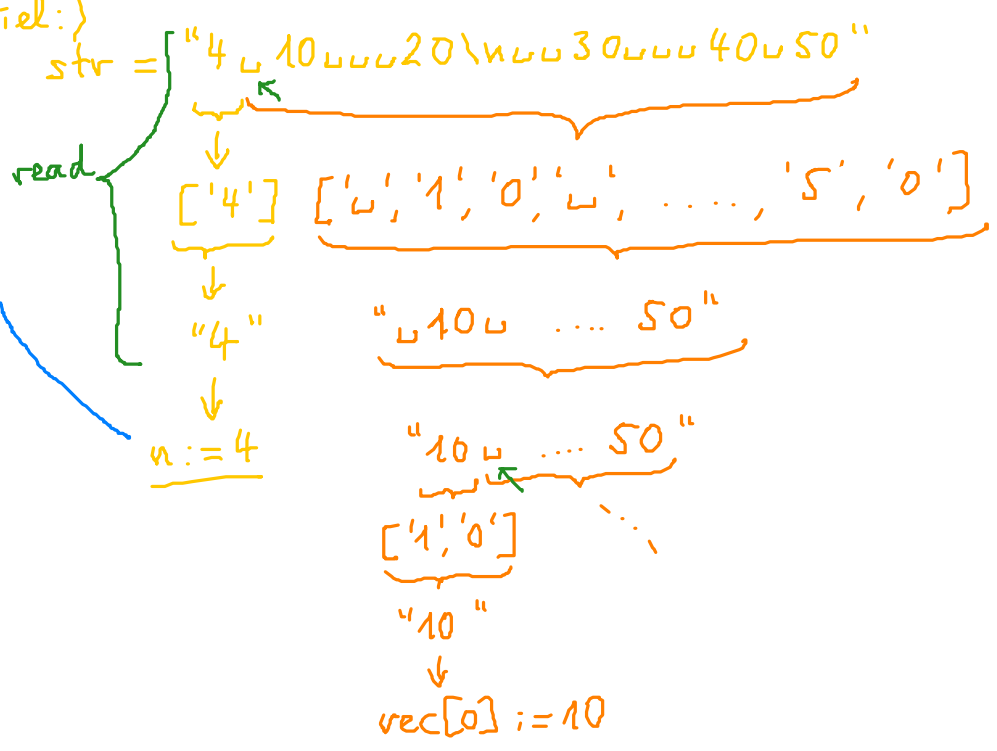 iel:}
str = "4␣10␣␣␣20\n␣␣30␣␣␣40␣50"
read
['4'] ['␣','1','0','␣', ...., '5', '0']
"4" "␣10␣ .... 50"
n := 4 "10␣ .... 50"
['1','0']
"10"
vec[0] := 10